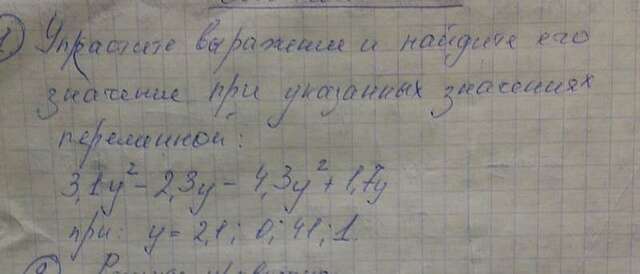 1) Упрастите выражение и найдите его
значение при указанных значениях
переменной:
3,1y² - 2,3y - 4,3y² + 1,7y
при: y = 2,1; 0; 41; 1.